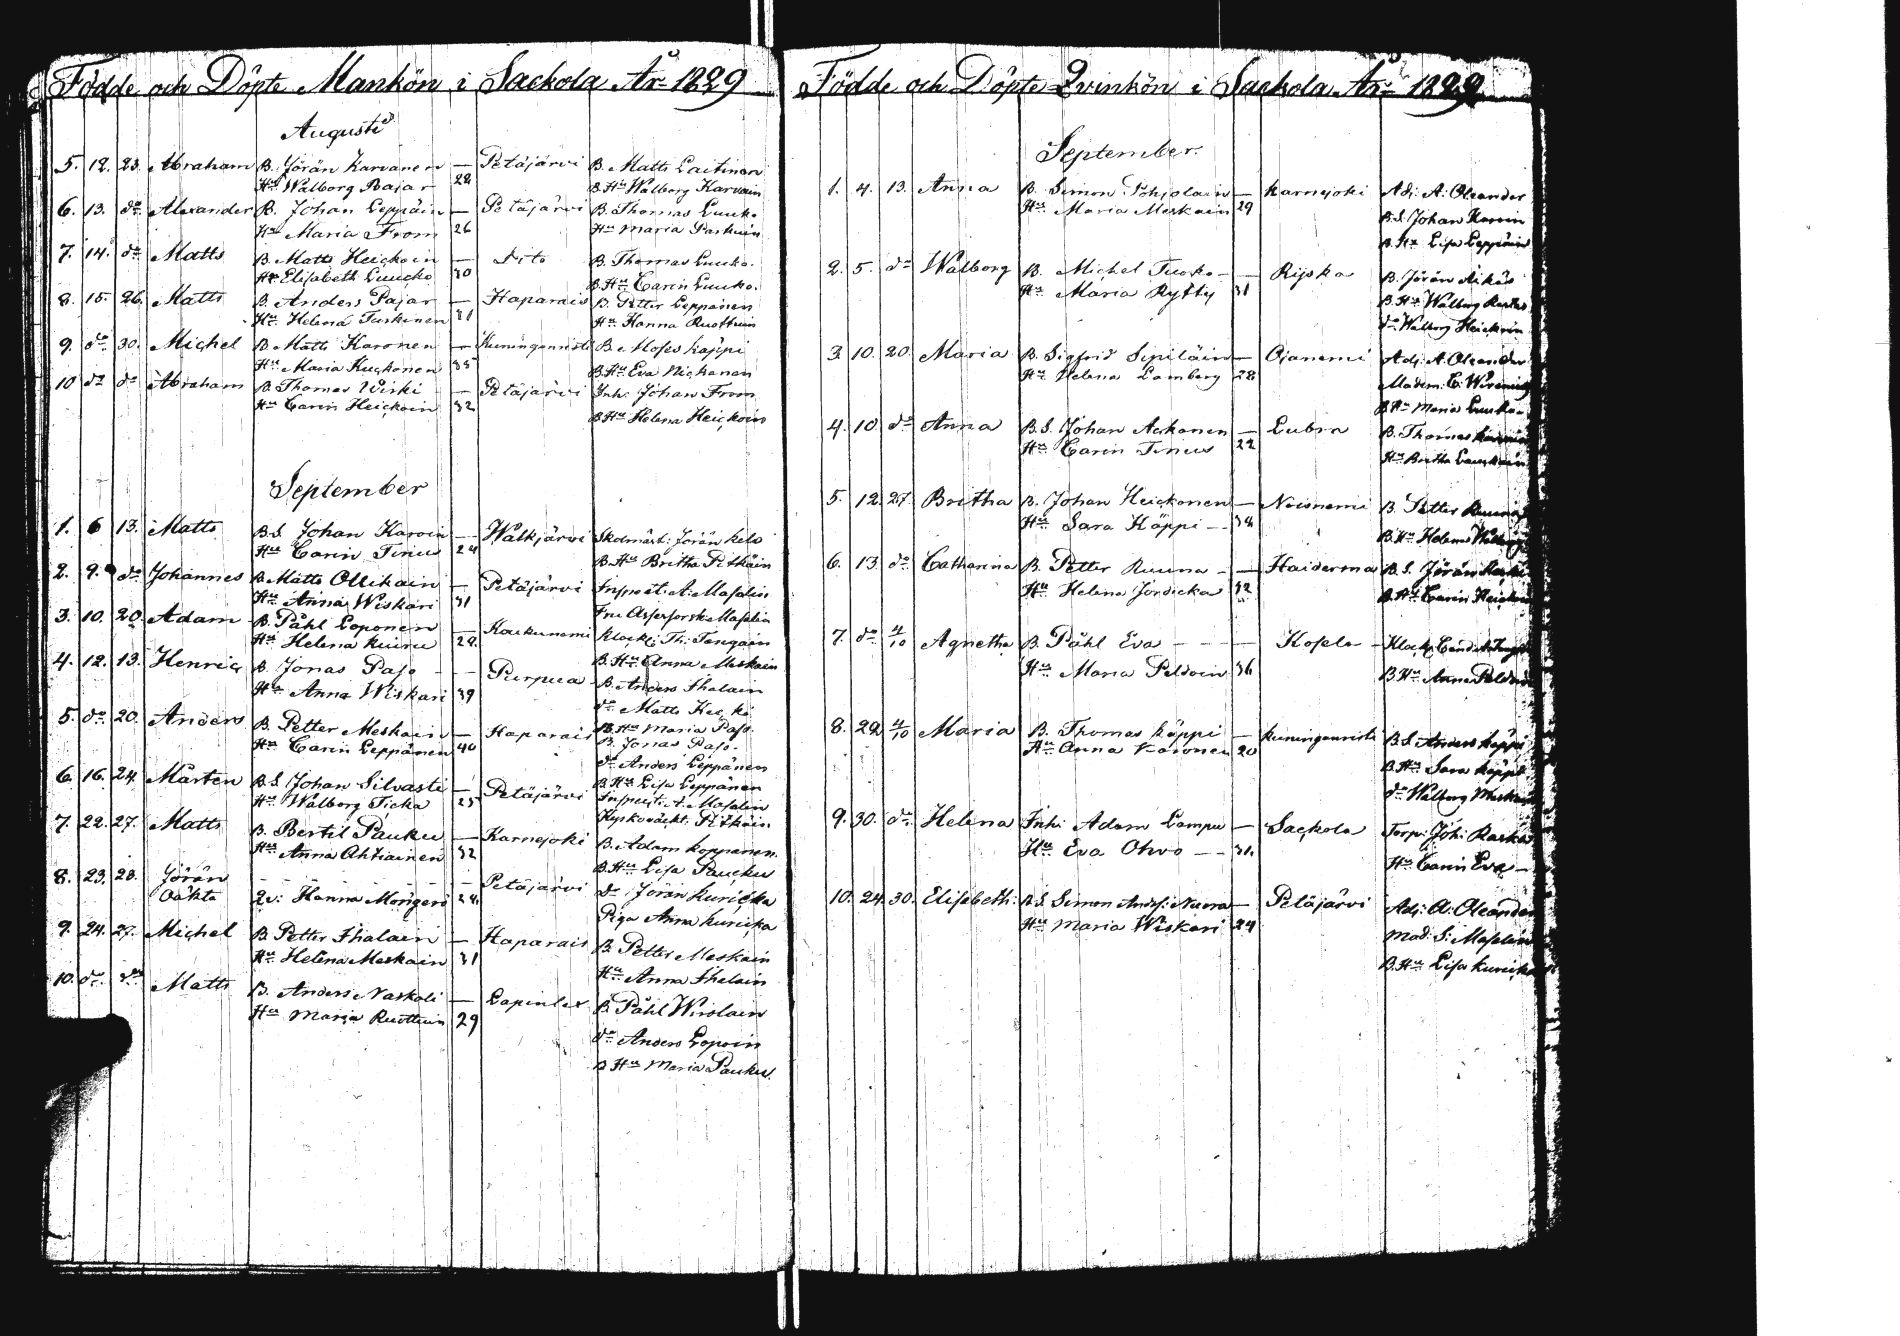 Födde och Döpte Mankön i Sackola År 1829
Augusti
5. 12. 23. Abraham B. Jörän Karvanen — Petäjärvi B. Matts Laitinen
Hu Walborg Pajar 28 B. Hu Walborg Karvain
6. 13. do Alexander B. Johan Leppäin — Petäjärvi B. Thomas Luuko
Hu Maria From 26 Hu Maria
7. 14. do Matts B. Matts Heickoin — Dito B. Thomas Luuko.
Hu Elisabeth Luucko 30 B. Hu Carin Luuko.
8. 15. 26. Matts B. Anders Pajar — Haparais B. Petter Leppänen
Hu Helena Turkinen 31 Hu Hanna Ruottuin
9. do 30. Michel B. Matts Karonen — Kuninganristi B. Moses Käppi
Hu Maria Kuckonen 35 B. Hu Eva Nickanen
10 do do Abraham B. Thomas Wiski — Petäjärvi Inh: Johan From
Hu Carin Heickoin 32 B. Hu Helena Heickoin
September
1. 6 13. Matts B.S. Johan Karvin — Walkjärvi Skolmäst: Jörän Kelo
Hu Carin Tinus 24 B. Hu Britha Pitkäin
2. 9. do Johannes B. Matts Ollikain — Petäjärvi Inspect: A: Masalin
Hu Anna Wiskari 31 Fru Masalin
3. 10. 20. Adam B. Påhl Loponen — Koukunemi Klock: Th: Tengain
Hu Helena Kuiru 28. B. Hu Anna Meskain
4. 12. 13. Henric B. Jonas Paso — Purpua B. Anders Ihalain
Hu Anna Wiskari 39 do Matts
5. do 20. Anders B. Petter Meskain — Haparais B. Hu Maria Paso
Hu Carin Leppänen 40 B. Jonas Paso.
do Anders Leppänen
6. 16. 24. Mårten B.S. Johan Silvasti — Petäjärvi B. Hu Lisa Leppänen
Hu Walborg Ticka 25 Inspect: A: Masalin
7. 22. 27. Matts B. Bertil Pauku — Karnejoki Kyrkovächt. Pitkäin
Hu Anna Ahtiainen 32 B. Adam Koppanen.
8. 23. 28. Jörän — Petäjärvi B. Hu Lisa Pauku
Oäkta Qv: Hanna 28. do Jörän Kuricka
Piga Anna Kuricka
9. 24. 27. Michel B. Petter Ihalain — Haparais B. Petter Meskain
Hu Helena Meskain 31 Hu Anna Ihalain
10. do do Matts B. Anders Naskali — Lapinlax B. Påhl Wirolain
Hu Maria Ruottuin 29 do Anders Lopoin
B. Hu Maria Pauku.
Födde och Döpte Qvinkön i Sackola År 1829
September.
1. 4. 13. Anna B. Simon Pohjolain — Karnejoki Adj: A: Oleander
Hu Maria Meskain 29 B.S. Johan Karvin
B. Hu Lisa Leppäin
2. 5. do Walborg B. Michel Tuoko — Rijska B. Jörän Aikäs
Hu Maria Rytty 31 B. Hu Walborg
do Walborg Heickoin
3. 10. 20. Maria B. Sigfrid Sipiläin — Ojanemi Adj: A: Oleander
Hu Helena Lamberg 28 Madem: C:
B. Hu Maria Luuko
4. 10. do Anna B.S. Johan Ackanen — Lubra B. Thomas
Hu Carin Tinus 22 Hu Britha
5. 12. 27. Britha B. Johan Heickonen — Noisnemi B. Petter Ruuna
Hu Sara Käppi — 38 B. Hu Helena
6. 13. do Catharina B. Petter Ruuna — Haiderma B.S. Jörän
Hu Helena Jordicka 32 B. Hu Carin Heickoin
7. do 4/10 Agnetha B. Påhl Eva — — Kosela Klock:
Hu Maria Peldoin 36 B. Hu Anna Peldoin
8. 29. 4/10 Maria B. Thomas Käppi — Kuninganristi B.S. Anders Käppi
Hu Anna Karonen 20 B. Hu Sara Käppi
do Walborg Meskain
9. 30. do Helena Inh: Adam Lampu — Sackola Torp: Joh: Raska
Hu Eva Ohvo — 31. Hu Carin Eva —
10. 24. 30. Elisabeth: B.S. Simon Andrs: Nuora — Petäjärvi Adj: A: Oleander
Hu Maria Wiskari 24 Mad: S: Masalin
B. Hu Lisa Kuricka